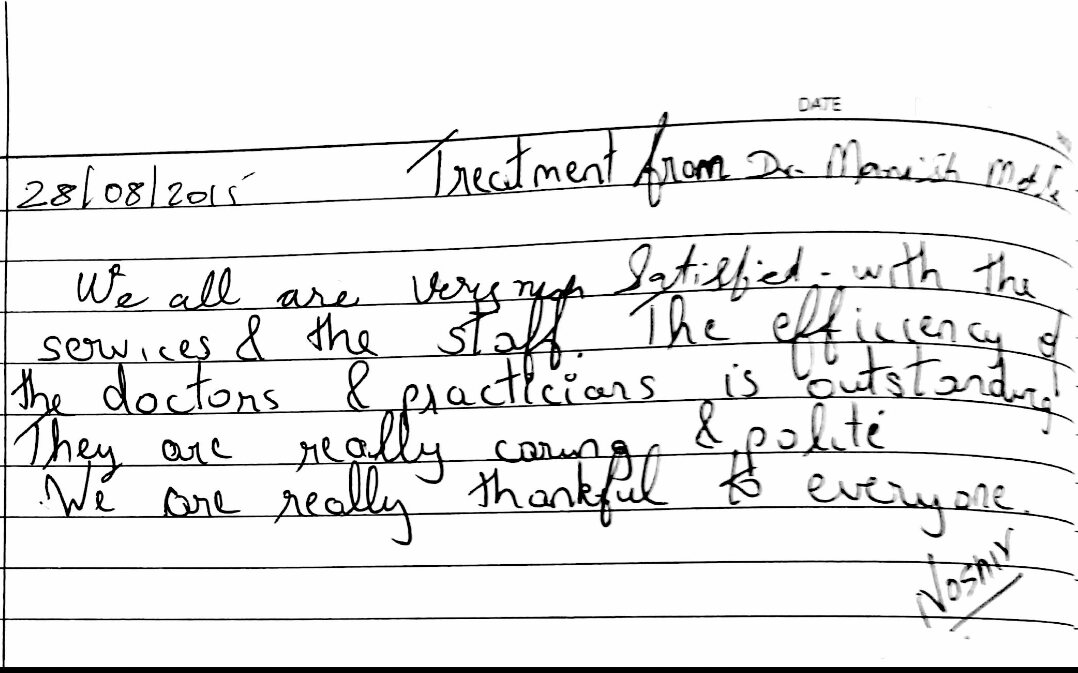 DATE
28/08/2015 Treatment from Dr. Manish
We all are very much Satisfied. with the
services & the staff. The efficiency of
the doctors & practicians is outstanding
They are really caring & polite
We are really thankful to everyone.